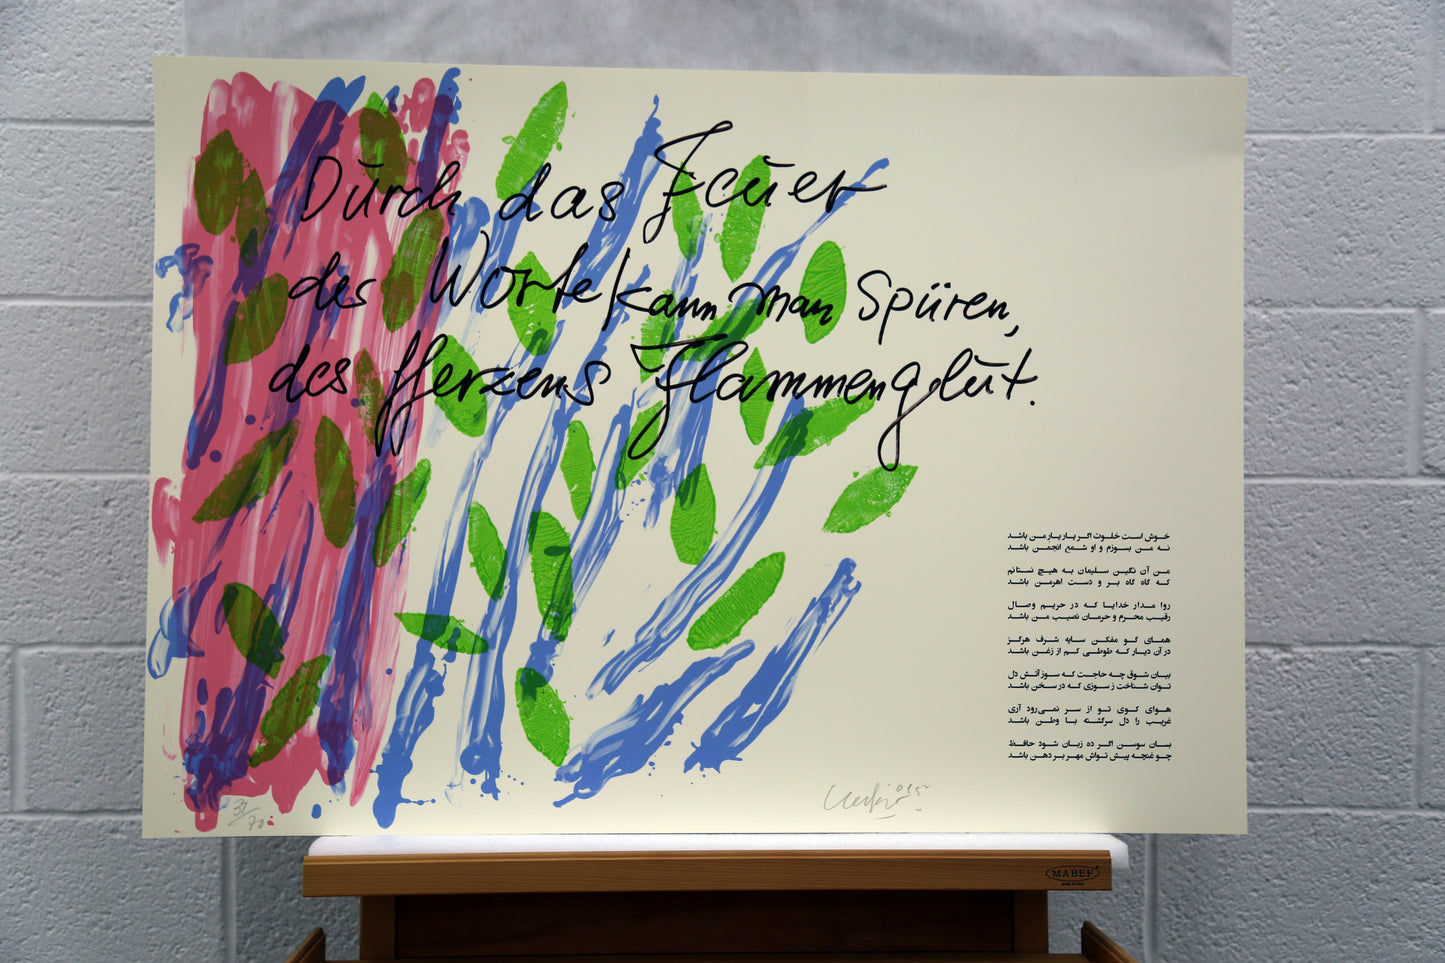 Durch das Feuer
des Worte kann man Spüren,
des Herzens Flammenglut.
خوش است خلوت اگر یار یار من باشد
نه من بسوزم و او شمع انجمن باشد
من آن نگین سلیمان به هیچ نستانم
که گاه گاه بر و دست اهرمن باشد
روا مدار خدایا که در حریم وصال
رقیب محرم و حرمان نصیب من باشد
همای گو مفکن سایه شرف هرگز
در آن دیار که طوطی کم از زغن باشد
بیان شوق چه حاجت که سوز آتش دل
توان شناخت ز سوزی که در سخن باشد
هوای کوی تو از سر نمی‌رود آری
غریب را دل سرگشته با وطن باشد
بسان سوسن اگر ده زبان شود حافظ
چو غنچه پیش تواش مهر بر دهن باشد
31/70
MABEF